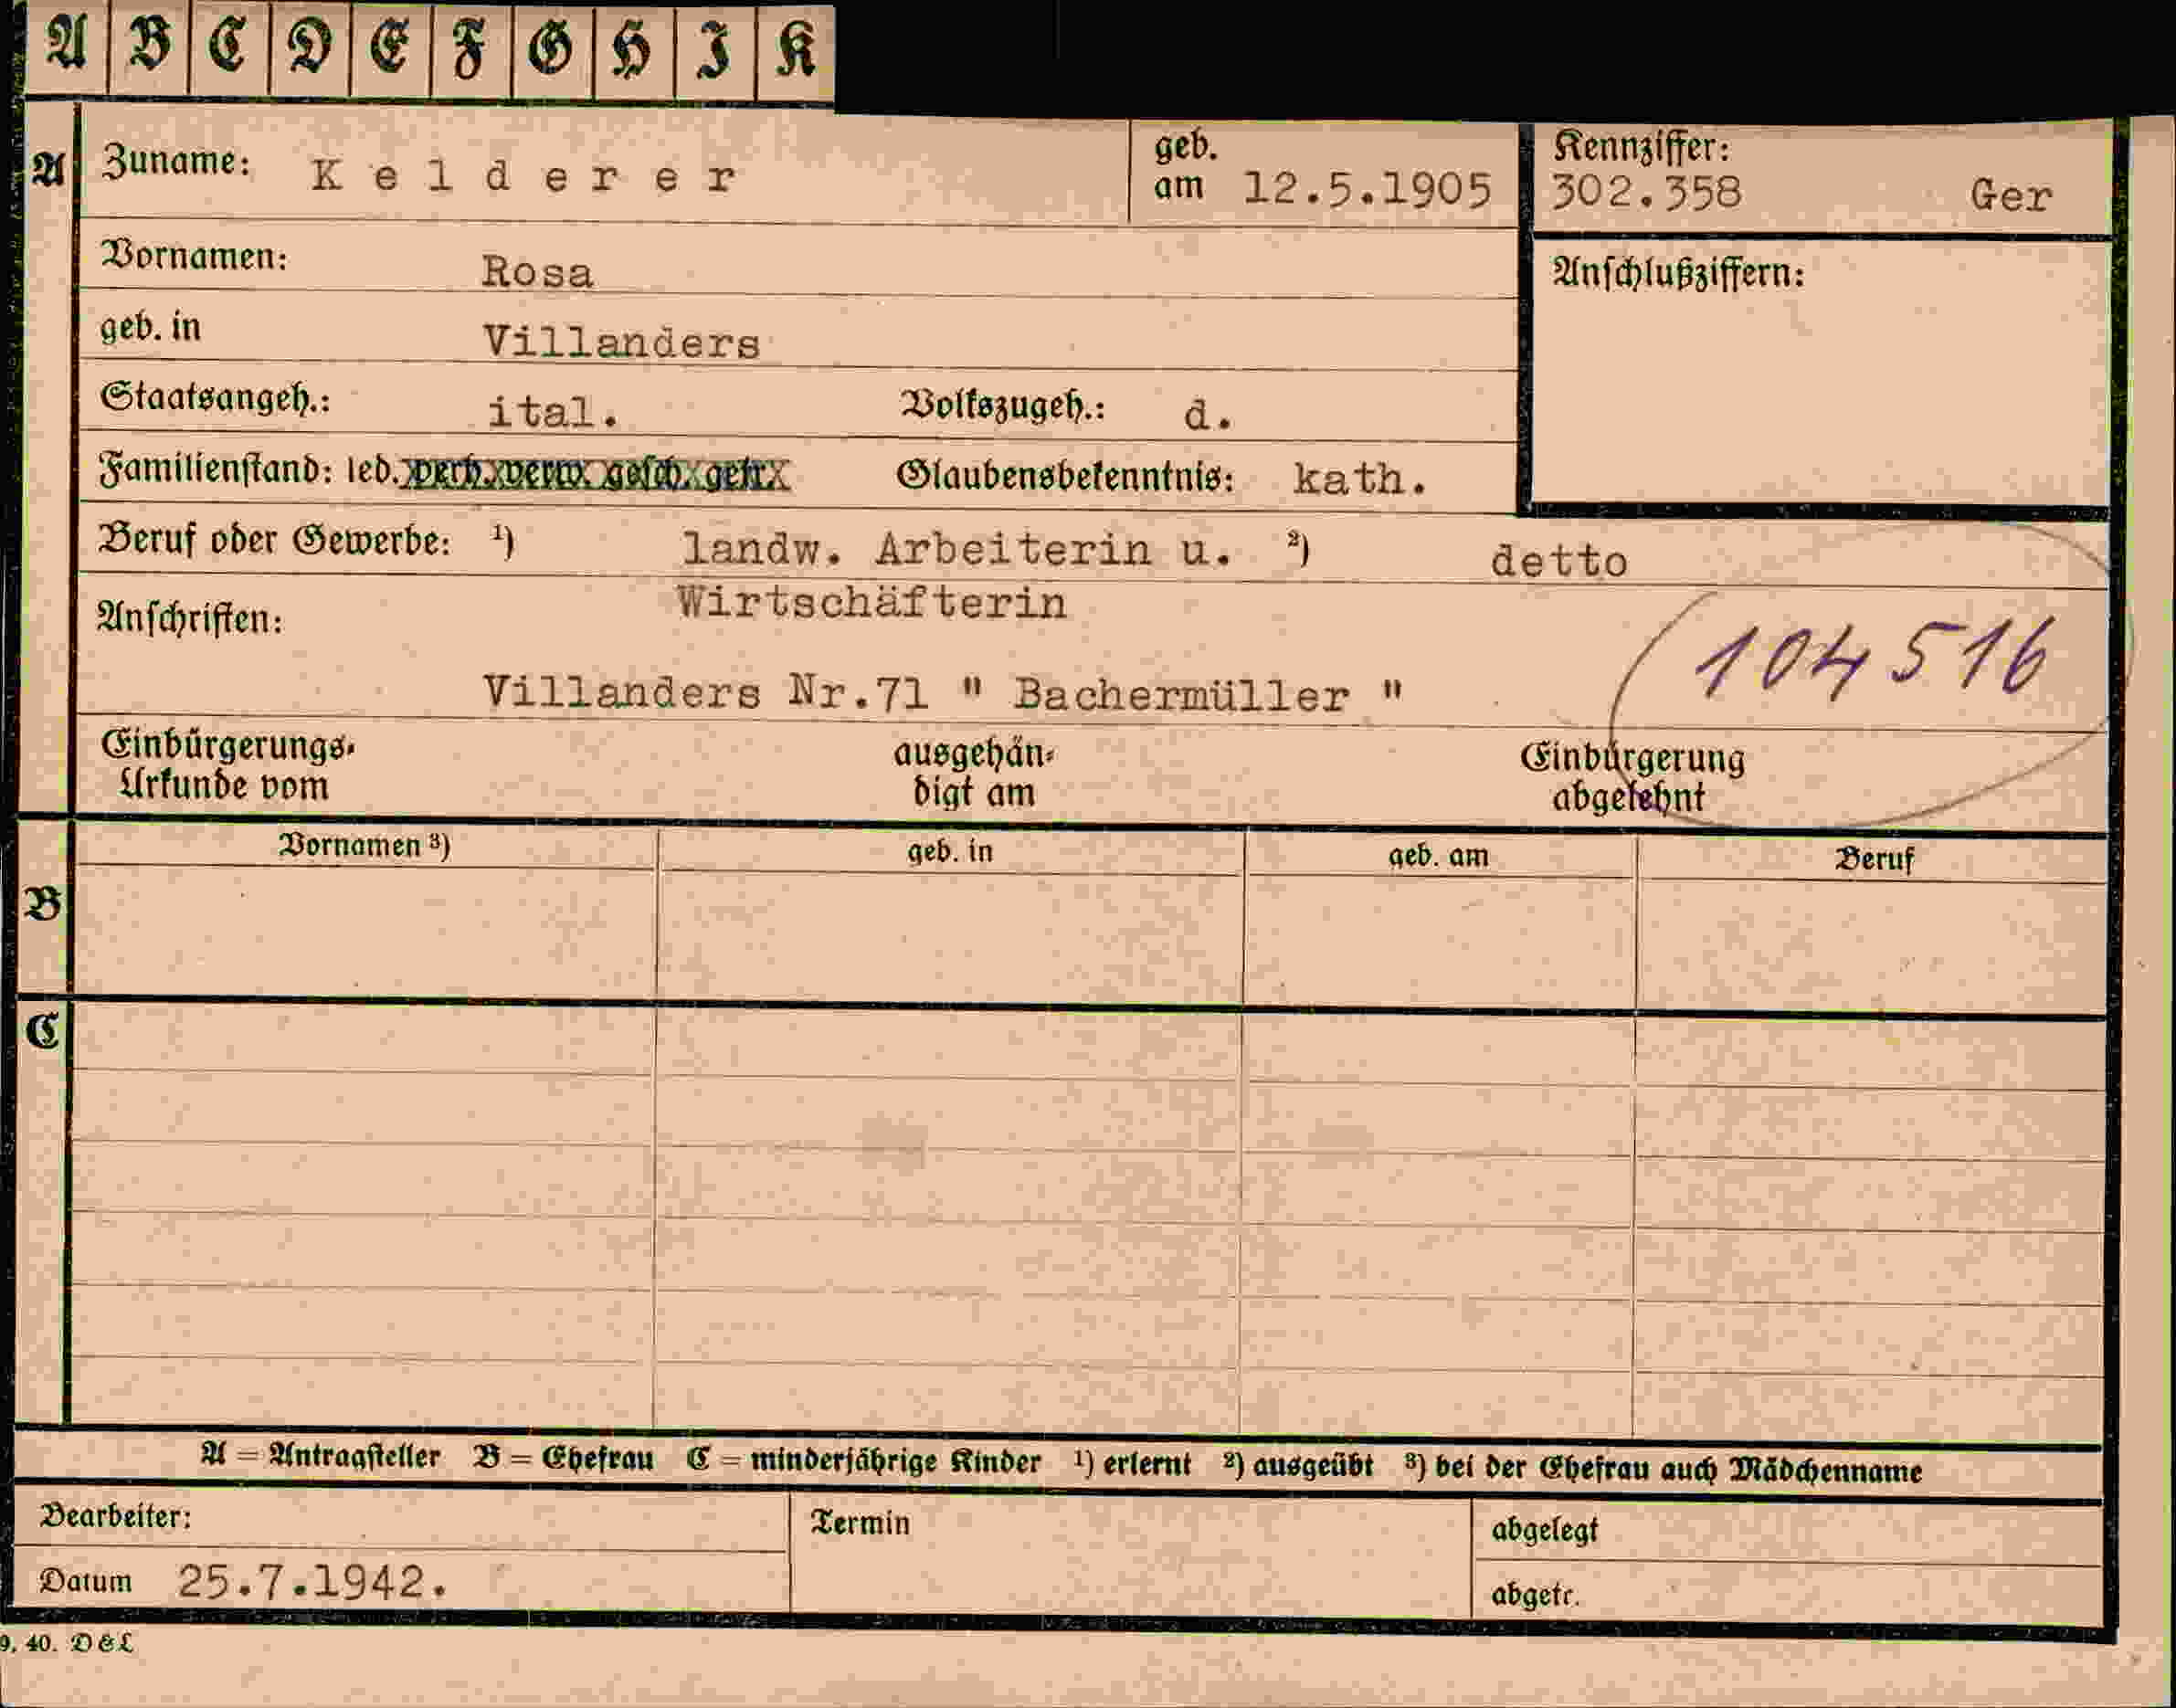 A B C D E F G H I K
A Zuname: Kelderer geb. am 12.5.1905 Kennziffer: 302.358 Ger
Vornamen: Rosa Anschlußziffern:
geb. in Villanders
Staatsangeh.: ital. Volkszugeh.: d.
Familienstand: led. verh. verw. gesch. getr. Glaubensbekenntnis: kath.
Beruf oder Gewerbe: ¹) landw. Arbeiterin u. ²) detto
Wirtschäfterin
Anschriften:
104516
Villanders Nr.71 " Bachermüller "
Einbürgerungs- Urkunde vom ausgehän- digt am Einbürgerung abgelehnt
Vornamen ³) geb. in geb. am Beruf
B
C
A = Antragsteller B = Ehefrau C = minderjährige Kinder ¹) erlernt ²) ausgeübt ³) bei der Ehefrau auch Mädchenname
Bearbeiter: Termin abgelegt
Datum 25.7.1942. abgetr.
9. 40. D&L